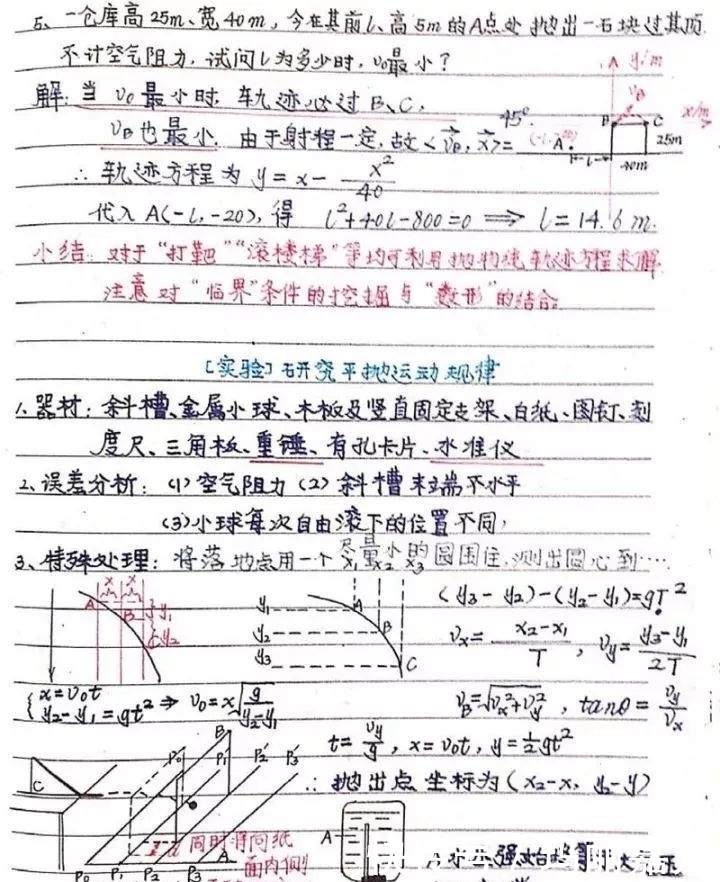 5、一仓库高25m、宽40m，今在其前l、高5m的A点处抛出一石块过其顶
不计空气阻力，试问l为多少时，v₀最小？
解：当v₀最小时，轨迹必过B、C，
v_B也最小，由于射程一定，故<v⃗_B，x⃗>=45°
∴轨迹方程为 y=x-x²/40
代入A(-l,-20)，得 l²+40l-800=0 ⟹ l=14.6m.
y/m
v_B
x/m
B C
A
25m
l
40m
小结：对于“打靶”“滚楼梯”等均可利用抛物线轨迹方程来解
注意对“临界”条件的挖掘与“数形”的结合。
[实验]研究平抛运动规律
1、器材：斜槽、金属小球、木板及竖直固定支架、白纸、图钉、刻
度尺、三角板、重锤、有孔卡片、水准仪
2、误差分析：(1)空气阻力(2)斜槽末端不水平
(3)小球每次自由滚下的位置不同，
3、特殊处理：将落地点用一个尽量小的圆围住，测出圆心到……
x x
A B
y₁
y₂
x₁ x₂ x₃
y₁ A
y₂ B
y₃ C
(y₃-y₂)-(y₂-y₁)=gT²
v_x=(x₂-x₁)/T，v_y=(y₃-y₁)/2T
{x=v₀t
y₂-y₁=gt² ⇒ v₀=x√(g/(y₂-y₁))
v_B=√(v_x²+v_y²)，tanθ=v_y/v_x
t=v_y/g，x=v₀t，y=½gt²
∴抛出点坐标为(x₂-x，y₂-y)
C
B
P₀' P₁' P₂' P₃'
A
P₀ P₁ P₂ P₃
同时得向纸
面内侧
A